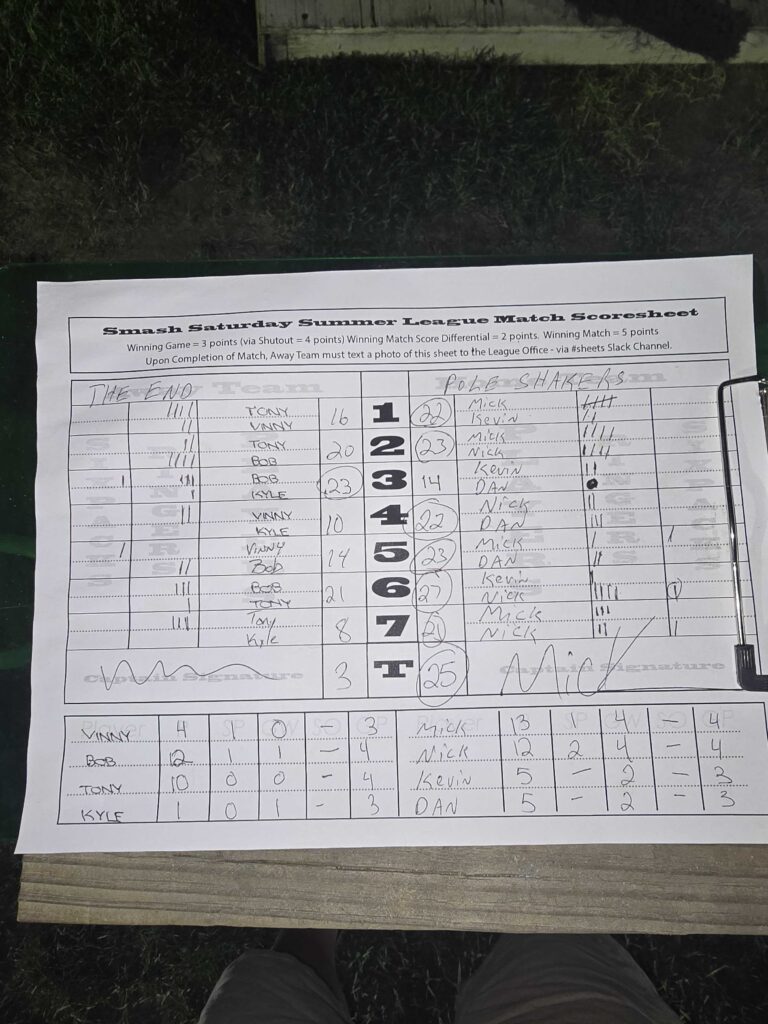 Smash Saturday Summer League Match Scoresheet
Winning Game = 3 points (via Shutout = 4 points) Winning Match Score Differential = 2 points. Winning Match = 5 points
Upon Completion of Match, Away Team must text a photo of this sheet to the League Office - via #sheets Slack Channel.
THE END Team POLE SHAKERS
TONY 16 1 22 Mick
VINNY Kevin
TONY 20 2 23 Mick
BOB Nick
BOB 23 3 14 Kevin
KYLE DAN
VINNY 10 4 22 Nick
KYLE DAN
VINNY 14 5 23 Mick
Bob DAN
BOB 21 6 27 Kevin
TONY Nick
Tony 8 7 21 Mick
Kyle Nick
Captain Signature 3 T 25 Mick Captain Signature
Player SP GW SO GP Player SP GW SO GP
VINNY 4 1 0 - 3 Mick 13 - 4 - 4
BOB 12 1 1 - 4 Nick 12 2 4 - 4
TONY 10 0 0 - 4 Kevin 5 - 2 - 3
KYLE 1 0 1 - 3 DAN 5 - 2 - 3